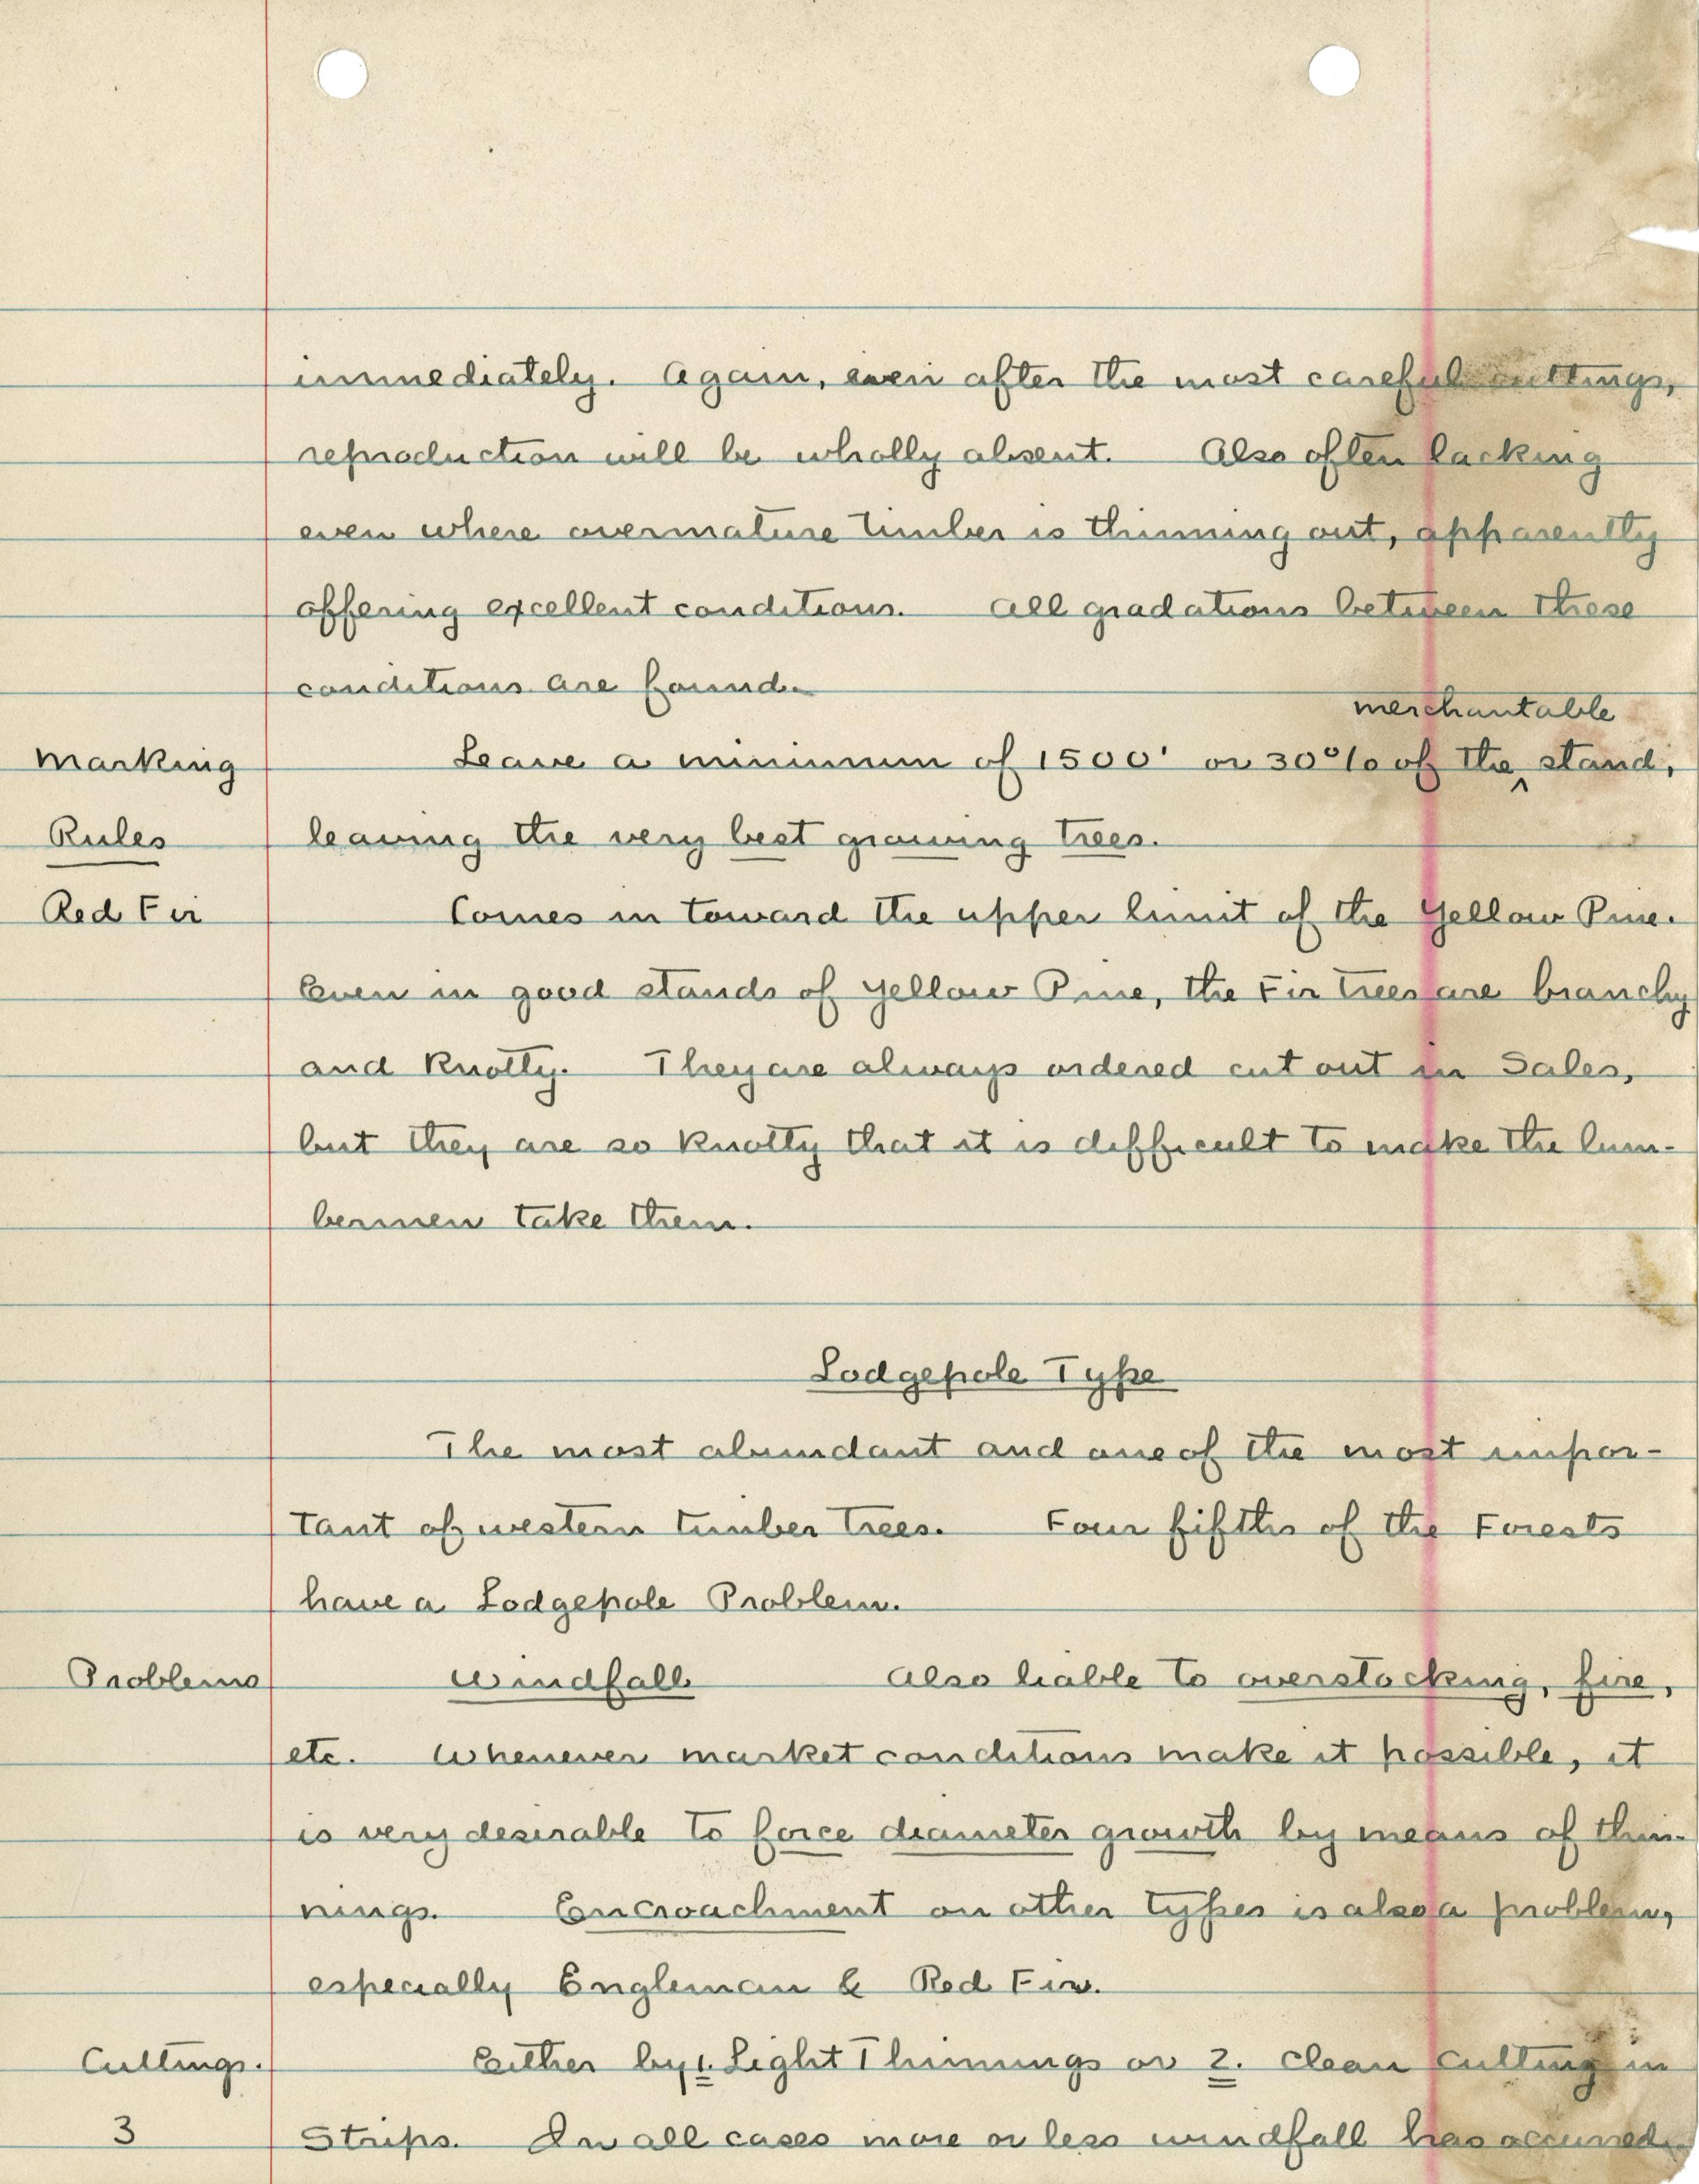 immediately. Again, even after the most careful cuttings,
reproduction will be wholly absent. Also often lacking
even where overmature timber is thinning out, apparently
offering excellent conditions. All gradations between these
conditions are found.
merchantable
Marking Leave a minimum of 1500' or 30% of the ^ stand,
Rules leaving the very best growing trees.
Red Fir Comes in toward the upper limit of the Yellow Pine.
Even in good stands of Yellow Pine, the Fir trees are branchy
and Knotty. They are always ordered cut out in Sales,
but they are so Knotty that it is difficult to make the lum-
bermen take them.
Lodgepole Type
The most abundant and one of the most impor-
tant of western timber trees. Four fifths of the Forests
have a Lodgepole Problem.
Problems Windfall Also liable to overstocking, fire,
etc. Whenever market conditions make it possible, it
is very desirable to force diameter growth by means of thin-
nings. Encroachment on other types is also a problem,
especially Engleman & Red Fir.
Cuttings. Either by 1. Light Thinnings or 2. Clean Cutting in
3 Strips. In all cases more or less windfall has occurred.